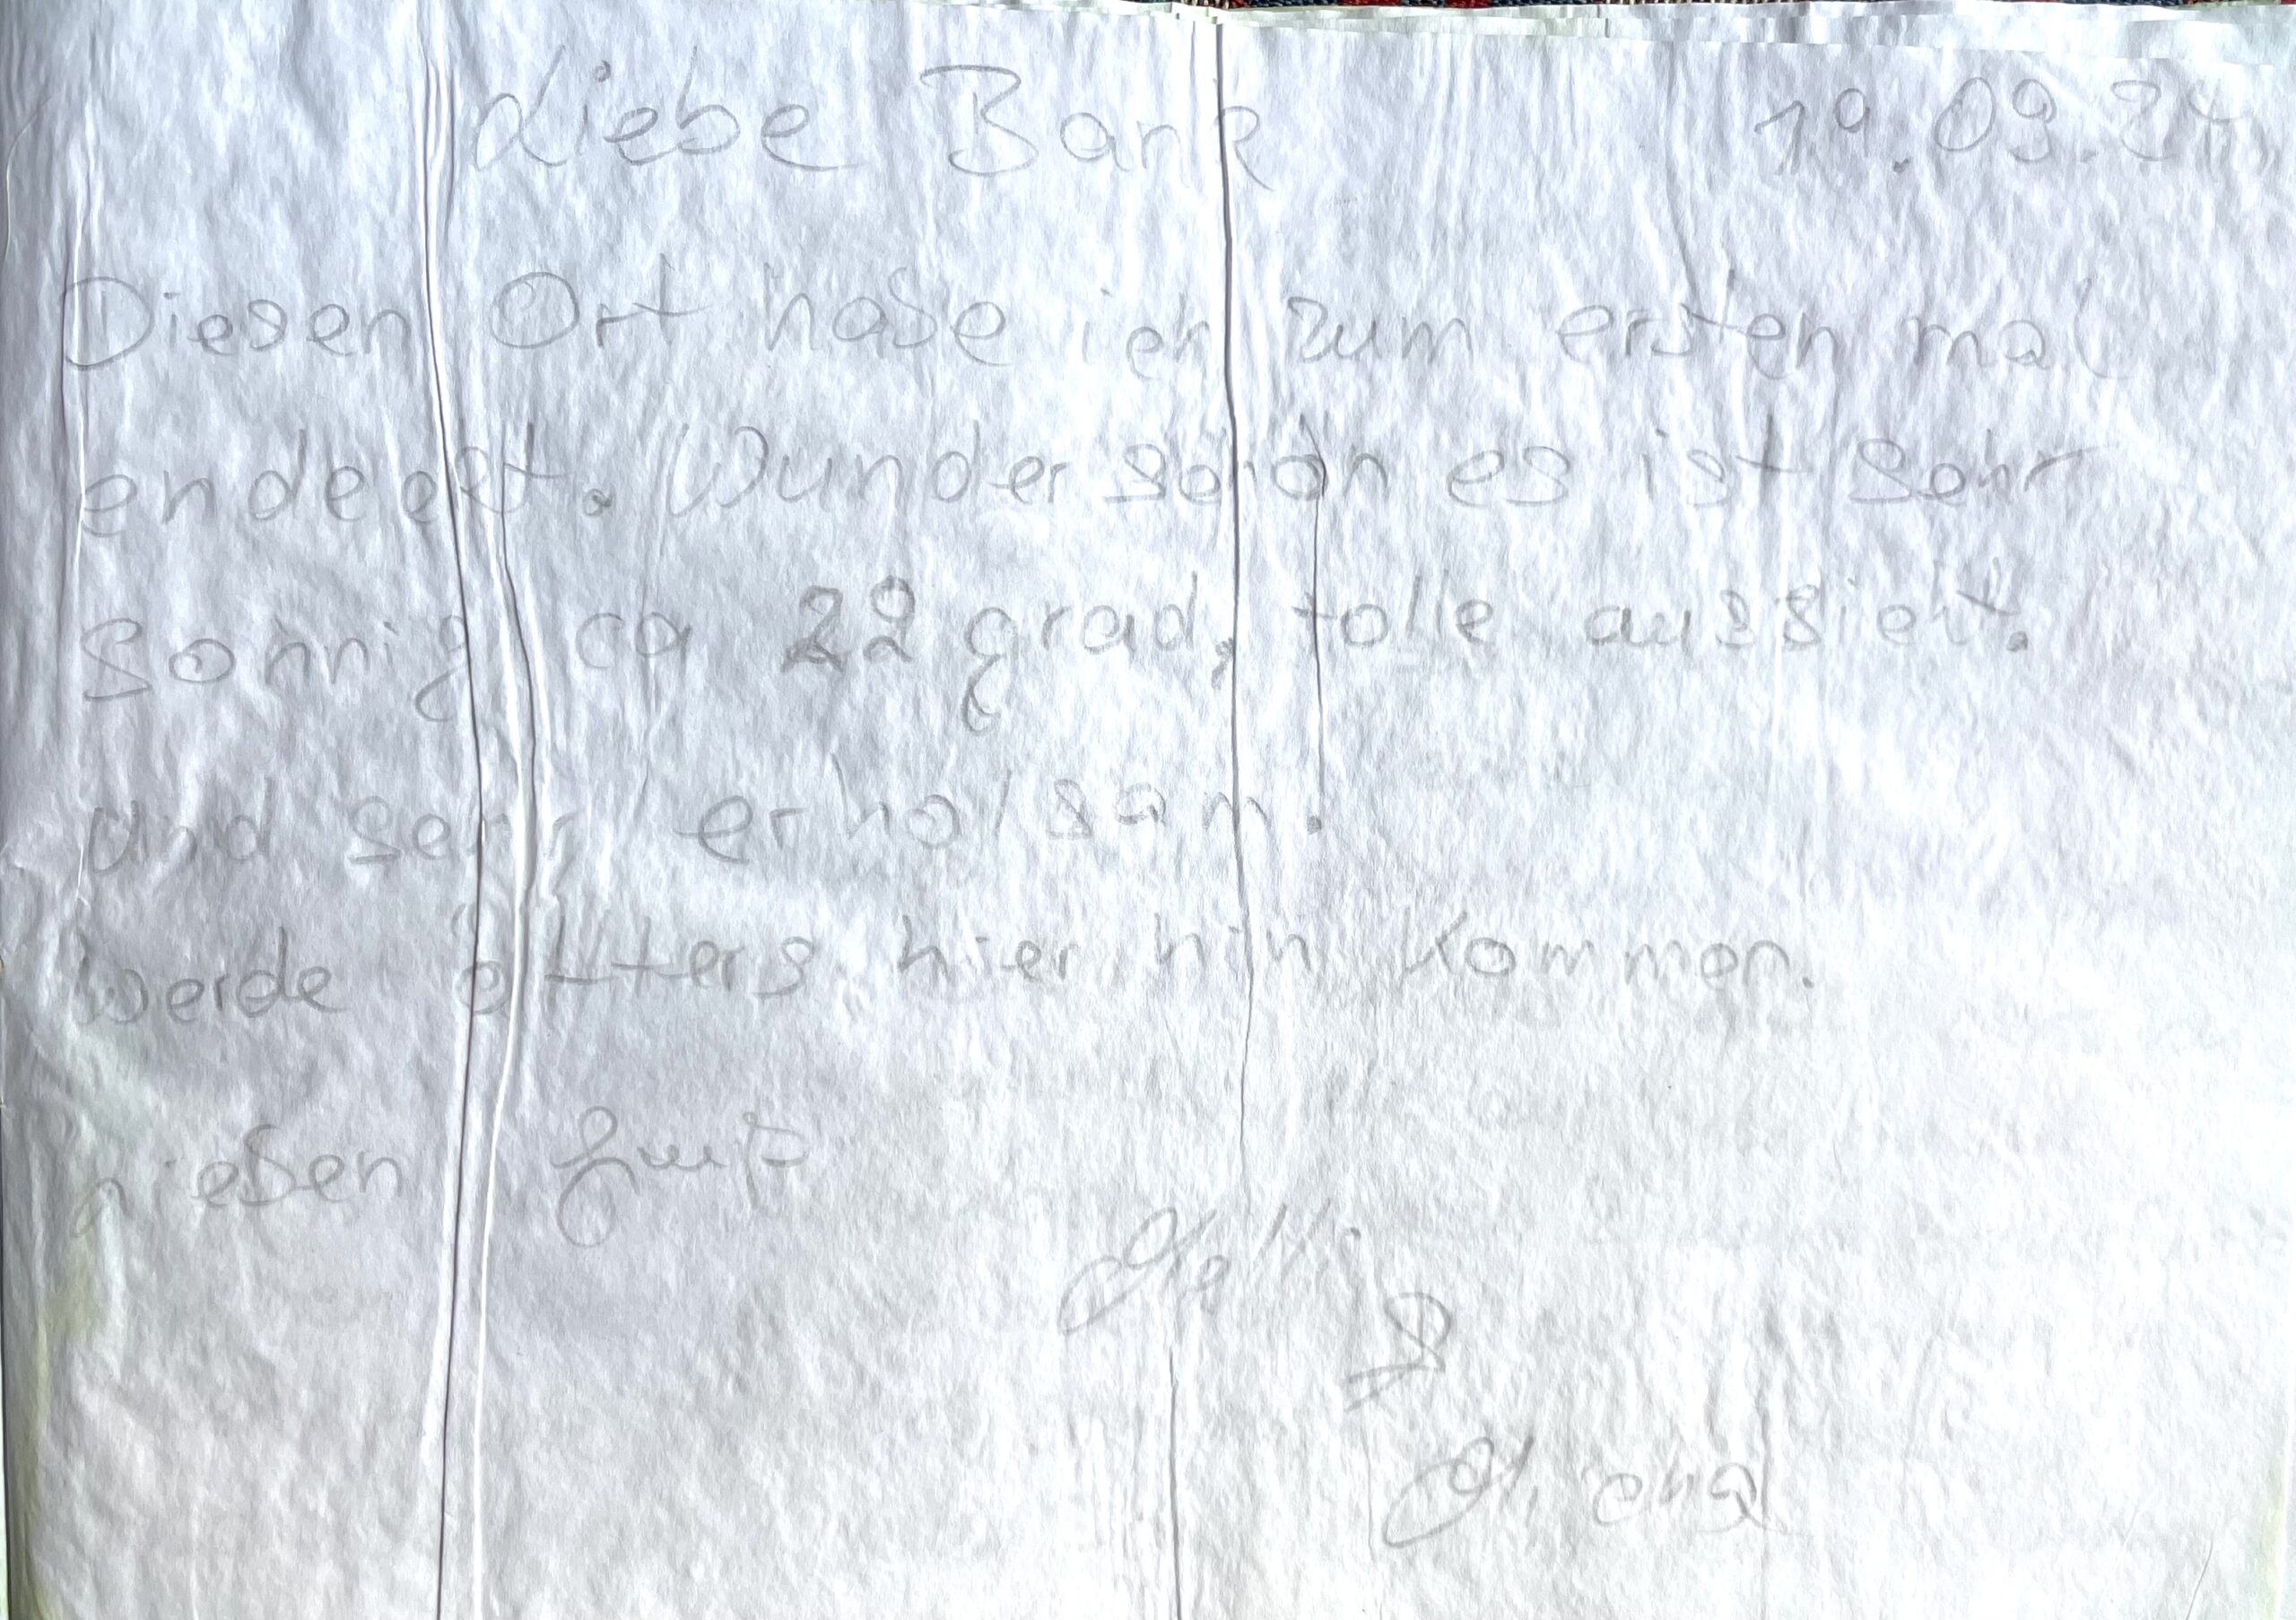 Liebe Bank 19.09.24
Diesen Ort habe ich zum ersten mal
endeckt. Wunderschön es ist sehr
sonnig ca 22 grad, tolle aussieht.
und sehr erholsam.
Werde öfters hier hin kommen.
lieben gruß
&